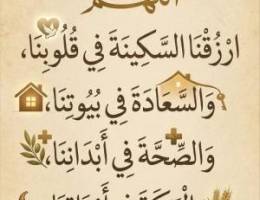 اللهم
ارْزُقْنَا السَّكِينَةَ فِي قُلُوبِنَا،
وَالسَّعَادَةَ فِي بُيُوتِنَا،
وَالصِّحَّةَ فِي أَبْدَانِنَا،